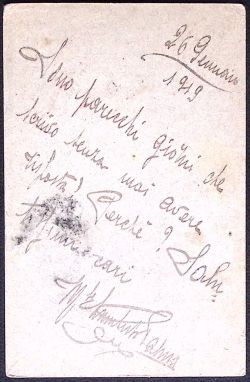 26 Gennaio
1919
Sono parecchi giorni che
scrivo senza mai avere
risposta! Perchè? Salu
ti cari